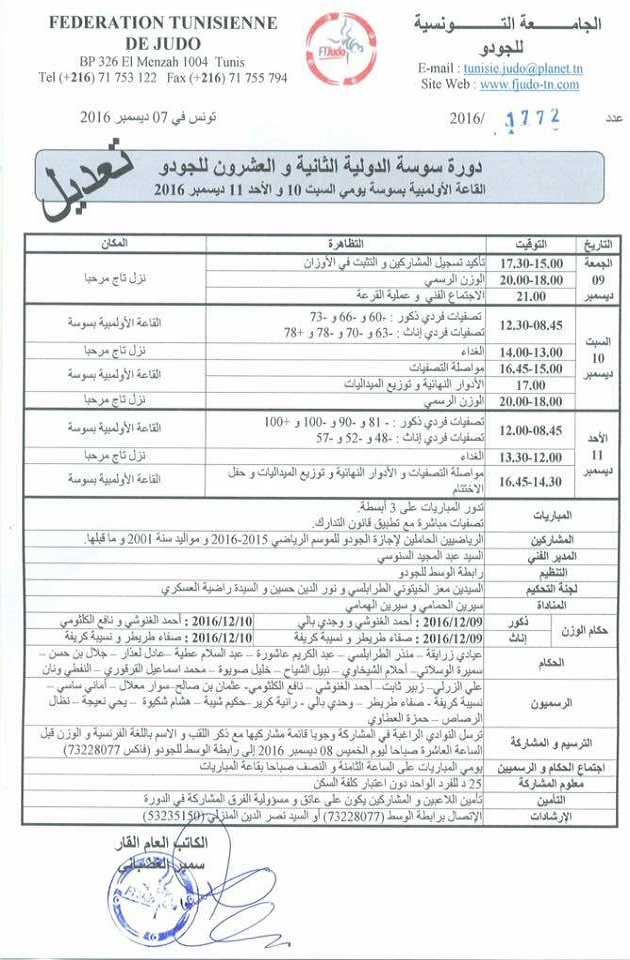 FEDERATION TUNISIENNE
DE JUDO
BP 326 El Menzah 1004 Tunis
Tel (+216) 71 753 122 Fax (+216) 71 755 794
الجامعة التونسية
للجودو
E-mail : tunisie.judo@planet.tn
Site Web : www.fjudo-tn.com
FTJudo
عدد 1772 /2016
تونس في 07 ديسمبر 2016
تعديل
دورة سوسة الدولية الثانية و العشرون للجودو
القاعة الأولمبية بسوسة يومي السبت 10 و الأحد 11 ديسمبر 2016
التاريخ التوقيت التظاهرة المكان
الجمعة 09 ديسمبر
17.30-15.00 تأكيد تسجيل المشاركين و التثبت في الأوزان
20.00-18.00 الوزن الرسمي نزل تاج مرحبا
21.00 الاجتماع الفني و عملية القرعة
السبت 10 ديسمبر
12.30-08.45 تصفيات فردي ذكور : -60 و -66 و -73 القاعة الأولمبية بسوسة
تصفيات فردي إناث : -63 و -70 و -78 و +78
14.00-13.00 الغداء نزل تاج مرحبا
16.45-15.00 مواصلة التصفيات القاعة الأولمبية بسوسة
17.00 الأدوار النهائية و توزيع الميداليات
20.00-18.00 الوزن الرسمي نزل تاج مرحبا
الأحد 11 ديسمبر
12.00-08.45 تصفيات فردي ذكور : - 81 و -90 و -100 و +100 القاعة الأولمبية بسوسة
تصفيات فردي إناث : -48 و -52 و -57
13.30-12.00 الغداء نزل تاج مرحبا
16.45-14.30 مواصلة التصفيات و الأدوار النهائية و توزيع الميداليات و حفل القاعة الأولمبية بسوسة
الاختتام
المباريات تدور المباريات على 3 أبسطة.
تصفيات مباشرة مع تطبيق قانون التدارك.
المشاركين الرياضيين الحاملين لإجازة الجودو للموسم الرياضي 2015-2016 و مواليد سنة 2001 و ما قبلها.
المدير الفني السيد عبد المجيد السنوسي
التنظيم رابطة الوسط للجودو
لجنة التحكيم السيدين معز الخيتوني الطرابلسي و نور الدين حسين و السيدة راضية العسكري
المناداة سيرين الحمامي و سيرين الهمامي
حكام الوزن ذكور 2016/12/09 : أحمد الغنوشي و وجدي بالي 2016/12/10 : أحمد الغنوشي و نافع الكلثومي
إناث 2016/12/09 : صفاء طريطر و نسيبة كريفة 2016/12/10 : صفاء طريطر و نسيبة كريفة
الحكام عيادي زرايقة – منذر الطرابلسي – عبد الكريم عاشورة – عبد السلام عطية – عادل لعذار – جلال بن حسن –
سميرة الوسلاتي – أحلام الشيخاوي – نبيل الشياح – خليل صويوة – محمد اسماعيل القرقوري – النفطي ونان
الرسميون علي الزرلي – زبير ثابت – أحمد الغنوشي – نافع الكلثومي- عثمان بن صالح-سوار معلال – أماني ساسي –
نسيبة كريفة - صفاء طريطر – وجدي بالي - رانية كرير-حكيم شيبة – هشام شكيوة – يحي نعيجة – نضال
الرصاص – حمزة العطاوي
الترسيم و المشاركة ترسل النوادي الراغبة في المشاركة وجوبا قائمة مشاركيها مع ذكر اللقب و الاسم باللغة الفرنسية و الوزن قبل
الساعة العاشرة صباحا ليوم الخميس 08 ديسمبر 2016 إلى رابطة الوسط للجودو (فاكس 73228077)
اجتماع الحكام و الرسميين يومي المباريات على الساعة الثامنة و النصف صباحا بقاعة المباريات
معلوم المشاركة 25 د للفرد الواحد دون اعتبار كلفة السكن
التأمين تأمين اللاعبين و المشاركين يكون على عاتق و مسؤولية الفرق المشاركة في الدورة
الإرشادات الإتصال برابطة الوسط (73228077) أو السيد نصر الدين المنزلي (53235150)
الكاتب العام القار
سمير الغضباني